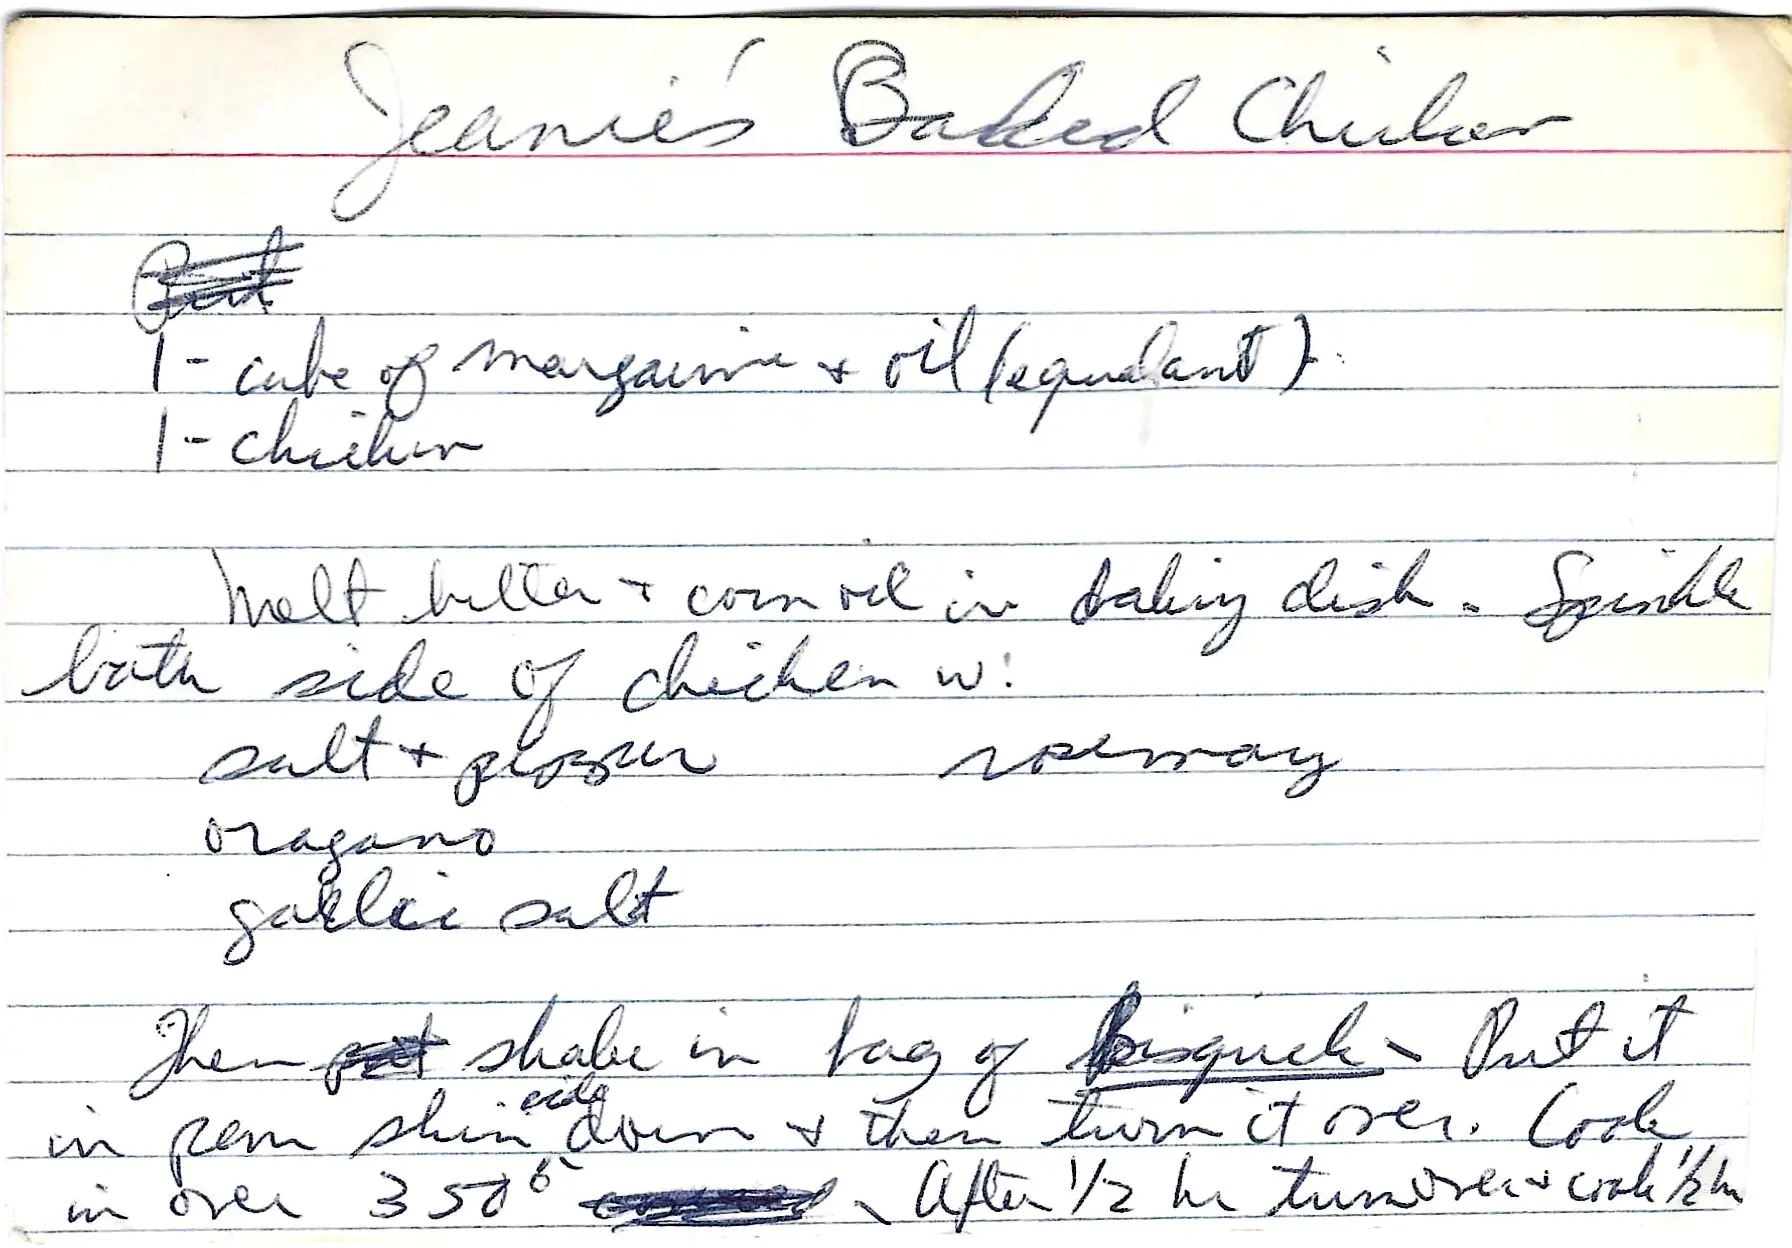 Jeanie's Baked Chicken
1 - cube of margarine + oil (equalant)
1 - chicken
Melt butter + corn oil in baking dish. Sprinkle
both side of chicken w:
salt + pepper rosemary
oragano
garlic salt
Then shake in bag of Bisquick - Put it
in pan skin side down + then turn it over. Cook
in oven 350° . After 1/2 hr turn over + cook 1/2 hr